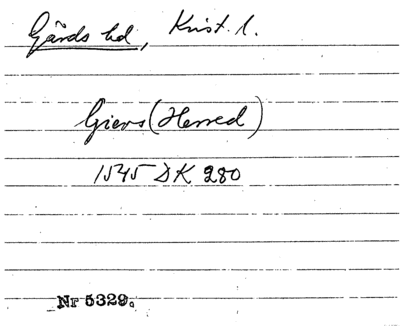 Gärds hd, Krist. l.
Giers (Herred)
1545 DK 280
Nr 5329.